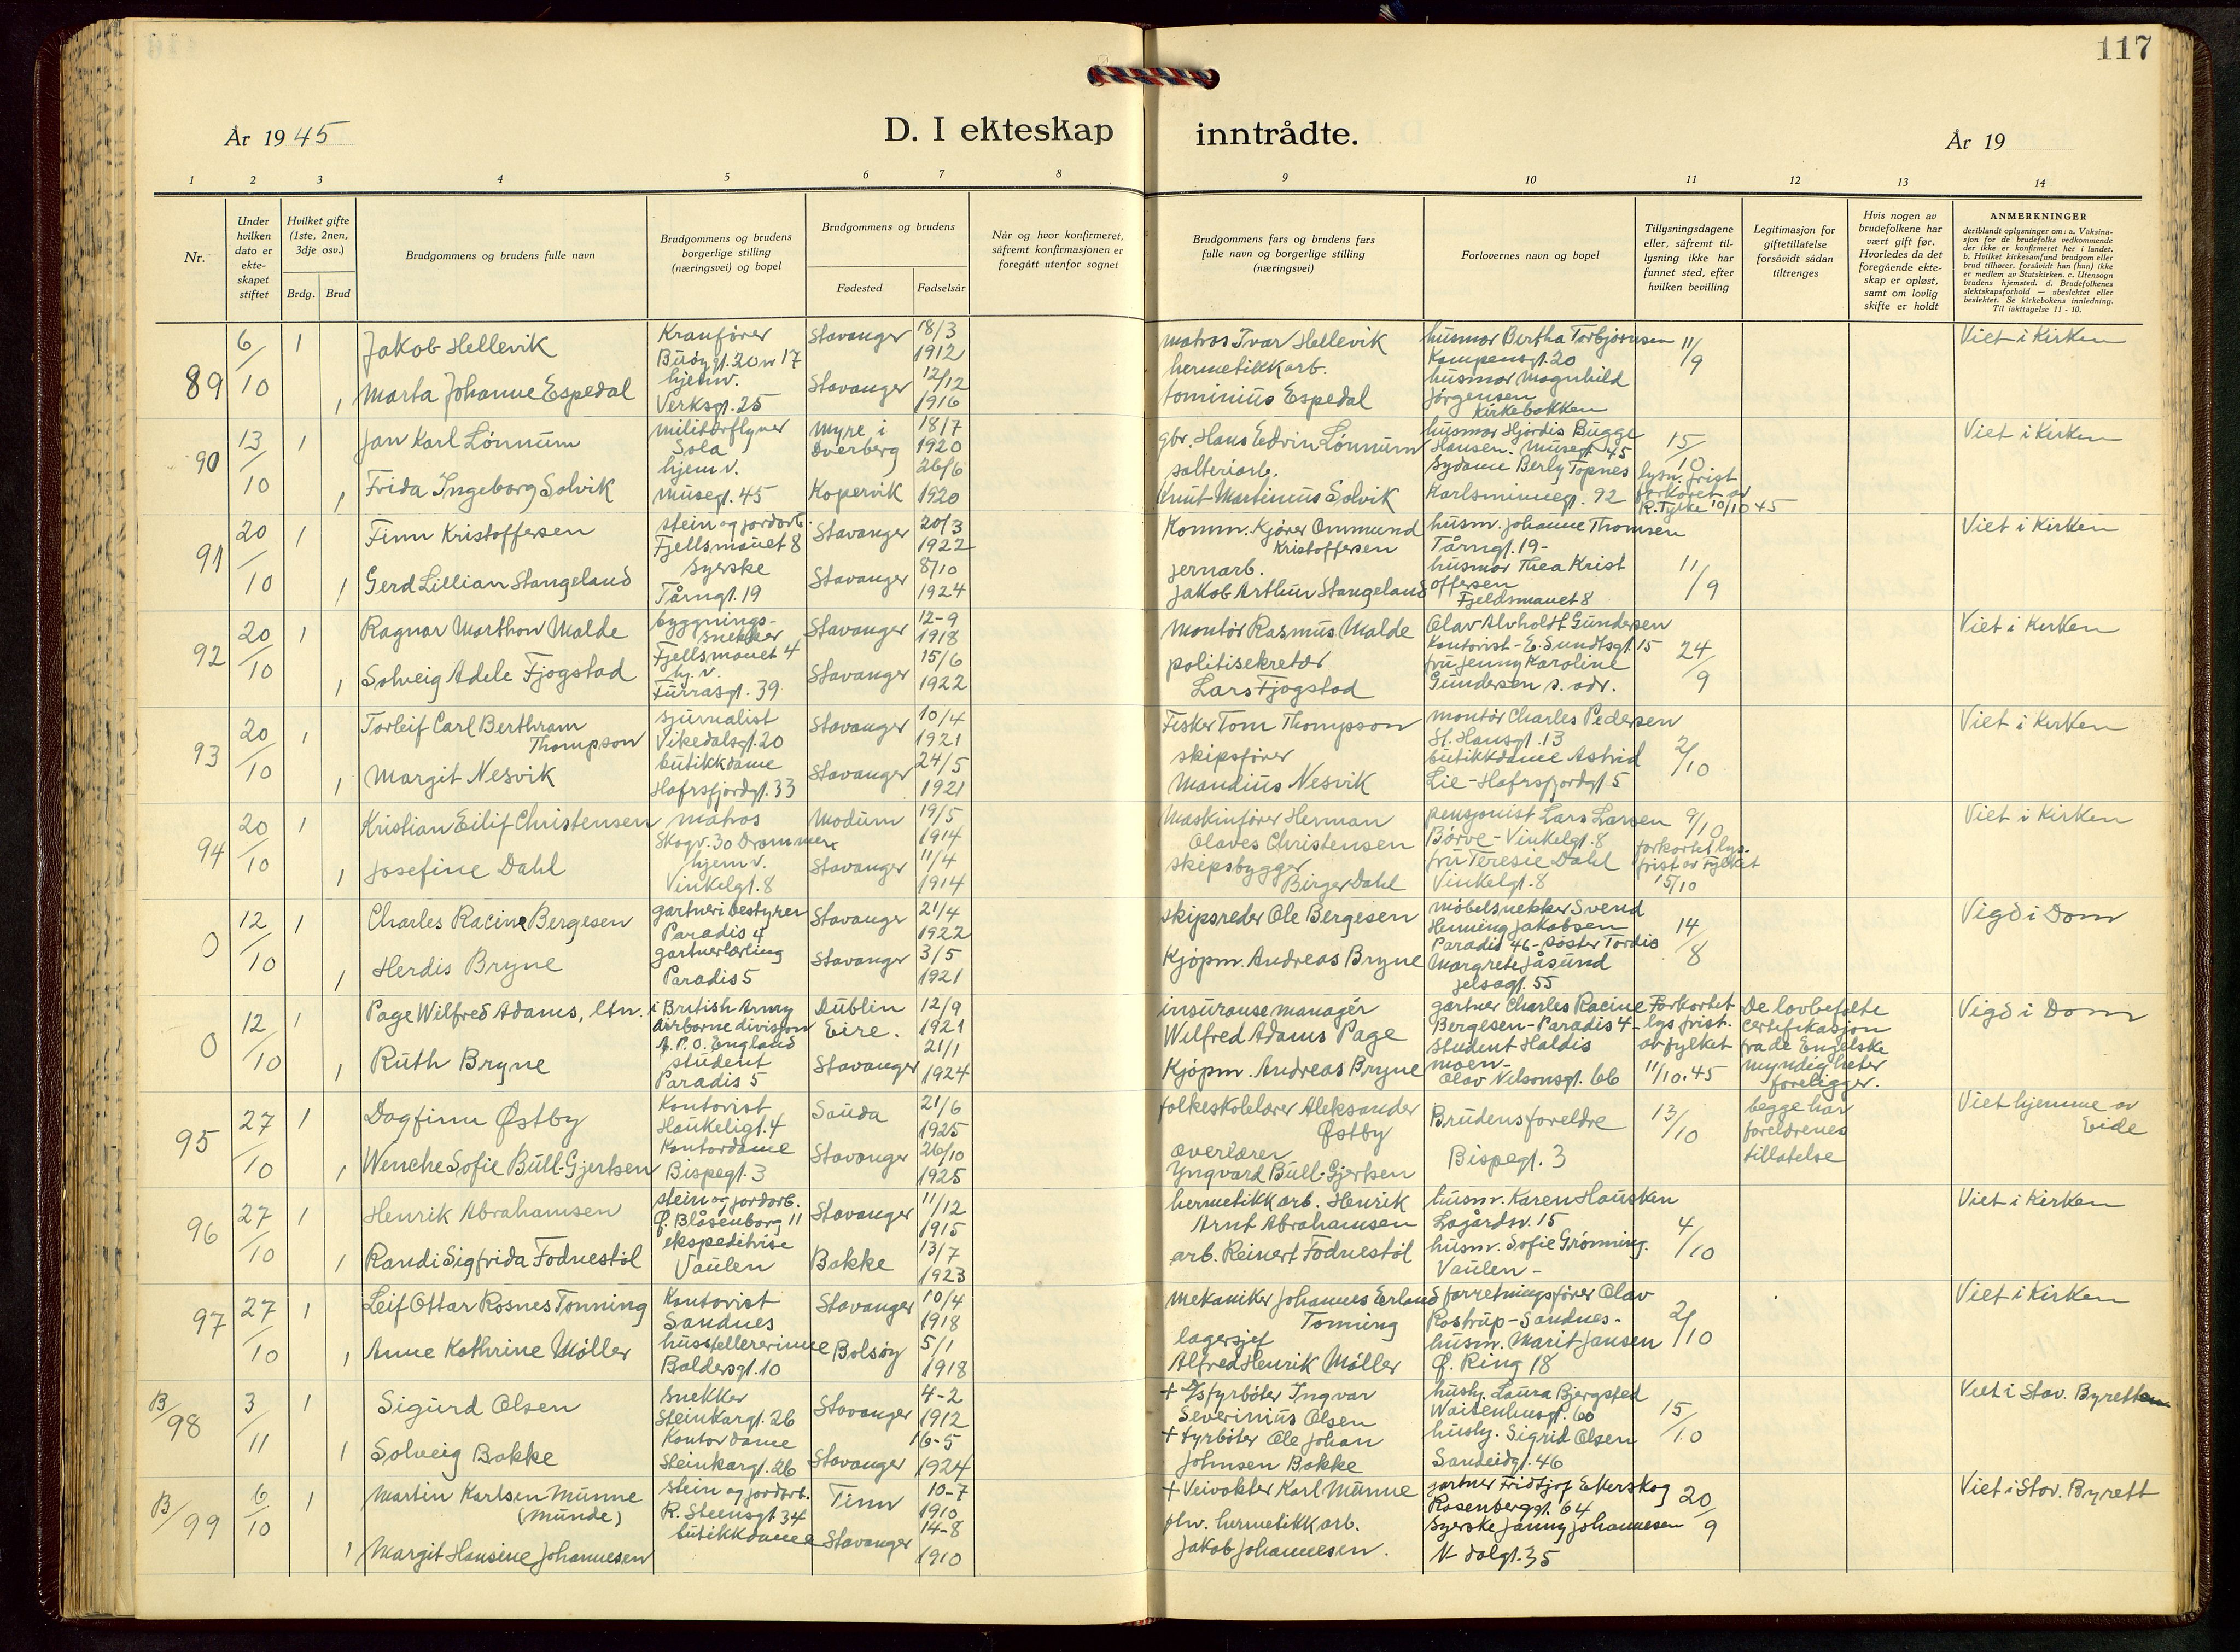 117
År 1945
D. I ekteskap inntrådte.
År 19
1 2 3 4 5 6 7 8 9 10 11 12 13 14
Nr.
Under hvilken dato er ekteskapet stiftet
Hvilket gifte (1ste, 2nen, 3dje osv.)
Brdg. Brud
Brudgommens og brudens fulle navn
Brudgommens og brudens borgerlige stilling (næringsvei) og bopel
Brudgommens og brudens
Fødested Fødselsår
Når og hvor konfirmeret, såfremt konfirmasjonen er foregått utenfor sognet
Brudgommens fars og brudens fars fulle navn og borgerlige stilling (næringsvei)
Forlovernes navn og bopel
Tillysningsdagene eller, såfremt tillysning ikke har funnet sted, efter hvilken bevilling
Legitimasjon for giftetillatelse forsåvidt sådan tiltrenges
Hvis nogen av brudefolkene har vært gift før. Hvorledes da det foregående ekteskap er opløst, samt om lovlig skifte er holdt
ANMERKNINGER
deriblandt oplysninger om: a. Vaksinasjon for de brudefolks vedkommende der ikke er konfirmeret her i landet. b. Hvilket kirkesamfund brudgom eller brud tilhører, forsåvidt han (hun) ikke er medlem av Statskirken. c. Utensogn brudens hjemsted. d. Brudefolkenes slektskapsforhold — ubeslektet eller beslektet. Se kirkebokens innledning. Til iakttagelse 11 - 10.
89 6/10 1 Jakob Hellevik Kranfører Buøygt. 20 nr 17 Stavanger 18/3 1912 matros Ivar Hellevik husmor Bertha Torbjørnsen Kampensgt. 20 11/9 Viet i Kirken
1 Marta Johanne Espedal hjemv. Verksgt. 25 Stavanger 12/12 1916 hermetikkarb. Tominius Espedal husmor Magnhild Jørgensen Kirkebakken
90 13/10 1 Jan Karl Lønnum militærflyver Sola Myre i Dverberg 18/7 1920 gbr. Hans Edvin Lønnum husmor Hjørdis Bugge Hansen. Musegt. 45 15/10 Viet i Kirken
1 Frida Ingeborg Solvik hjem v. Musegt. 45 Kopervik 26/6 1920 salteriarb. Knut Martinius Solvik Sydame Berly Topnes Karlsminnegt. 92 lysn. frist forkortet av R. Fylke 10/10 45
91 20/10 1 Finn Kristoffersen stein og jordarb. Fjellsmauet 8 Stavanger 20/3 1922 Komm. Kjører Ommund Kristoffersen husm. Johanne Thomsen Tårngt. 19- 11/9 Viet i Kirken
1 Gerd Lillian Stangeland Syerske Tårngt. 19 Stavanger 8/10 1924 jernarb. Jakob Arthur Stangeland husmor Thea Kristoffersen Fjeldsmauet 8
92 20/10 1 Ragnar Marthon Malde bygningssnekker Fjellsmauet 4 Stavanger 12-9 1918 Montør Rasmus Malde Olav Alvholdt Gundersen Kontorist - E. Sundtsgt. 15 24/9 Viet i Kirken
1 Solveig Adele Fjogstad hj. v. Furrasgt. 39 Stavanger 15/6 1922 politisekretær Lars Fjogstad fru Jenny Karoline Gundersen s. adr.
93 20/10 1 Torleif Carl Berthram Thompson sjurnalist Vikedalsgt. 20 Stavanger 10/4 1921 Fisker Tom Thompson montør Charles Pedersen St. Hansgt. 13 2/10 Viet i Kirken
1 Margit Nesvik butikkdame Hafrsfjordgt. 33 Stavanger 24/5 1921 skipsfører Mandius Nesvik butikkdame Astrid Lie - Hafrsfjordgt. 5
94 20/10 1 Kristian Eilif Christensen matros Skogv. 30 Drammen Modum 19/5 1914 Maskinfører Herman Olaves Christensen pensjonist Lars Larsen Børve - Vinkelgt. 8 9/10 Viet i Kirken
1 Josefine Dahl hjem v. Vinkelgt. 8 Stavanger 11/4 1914 skipsbygger Birger Dahl fru Teresie Dahl Vinkelgt. 8 forkortet lys. frist av Fylket 15/10
0 12/10 1 Charles Racine Bergesen gartneribestyrer Paradis 4 Stavanger 21/4 1922 skipsreder Ole Bergesen møbelsnekker Svend Henning Jakobsen Paradis 46 - 14/8 Vigd i Dom
1 Herdis Bryne gartnerlærling Paradis 5 Stavanger 3/5 1921 Kjøpm. Andreas Bryne søster Tordis Margrete Jåsund Jelsagt. 55
0 12/10 1 Page Wilfred Adams, ltn. i British Army Airborne division A.P.O. England Dublin Eire. 12/9 1921 insuranse manager Wilfred Adams Page gartner Charles Racine Bergesen - Paradis 4 - Forkortet lys frist. av fylket 11/10.45 De lovbefalte certifikasjon fra de Engelske myndigheter foreligger. Vigd i Dom
1 Ruth Bryne student Paradis 5 Stavanger 21/1 1924 Kjøpm. Andreas Bryne Student Haldis Moen - Olav Nilsonsgt. 66
95 27/10 1 Dagfinn Østby Kontorist Haukeligt. 4 Sauda 21/6 1925 folkeskolelærer Aleksander Østby Brudens foreldre 13/10 begge har foreldrenes tillatelse Viet hjemme av Eide
1 Wenche Sofie Bull-Gjertsen Kontordame Bispegt. 3 Stavanger 26/10 1925 overlærer Yngvard Bull-Gjertsen Bispegt. 3
96 27/10 1 Henrik Abrahamsen stein og jordarb. Ø. Blåsenborg 11 Stavanger 11/12 1915 hermetikkarb. Henrik Arnt Abrahamsen husm. Karen Hausken Lagårdsv. 15 4/10 Viet i Kirken
1 Randi Sigfrida Fodnestøl ekspeditrise Vaulen Bakke 13/7 1923 arb. Reinert Fodnestøl husm. Sofie Grønning. Vaulen -
97 27/10 1 Leif Ottar Rosnes Tonning Kontorist Sandnes Stavanger 10/4 1918 mekaniker Johannes Erland Tonning forretningsfører Olav Rostrup - Sandnes - 2/10 Viet i Kirken
1 Anne Kathrine Møller husstellererinne Baldersgt. 10 Bolsøy 5/1 1918 lagersjef Alfred Henrik Møller husm. Marit Jansen Ø. Ring 18
B/98 3/11 1 Sigurd Olsen Snekker Steinkargt. 26 Stavanger 4-2 1912 + Fyrbøter Ingvar Severinius Olsen husby. Laura Bjergsted Waisenhusgt. 60 15/10 Viet i Stav. Byrett
1 Solveig Bakke Kontordame Steinkargt. 26 Stavanger 16-5 1924 + fyrbøter Ole Johan Johnsen Bakke husby. Sigrid Olsen Sandeidgt. 46
B/99 6/10 1 Martin Karlsen Munne (Munde) Stein og jordarb. R. Steensgt 34 Tinn 10-7 1910 + Veivokter Karl Munne gartner Fridtjof Ekerskog Rosenberggt. 64 20/9 Viet i Stav. Byrett
1 Margit Hansine Johannesen butikkdame Stavanger 14-8 1910 fhv. hermetikkarb. Jakob Johannesen. Syerske Janny Johannesen N- dalgt. 35